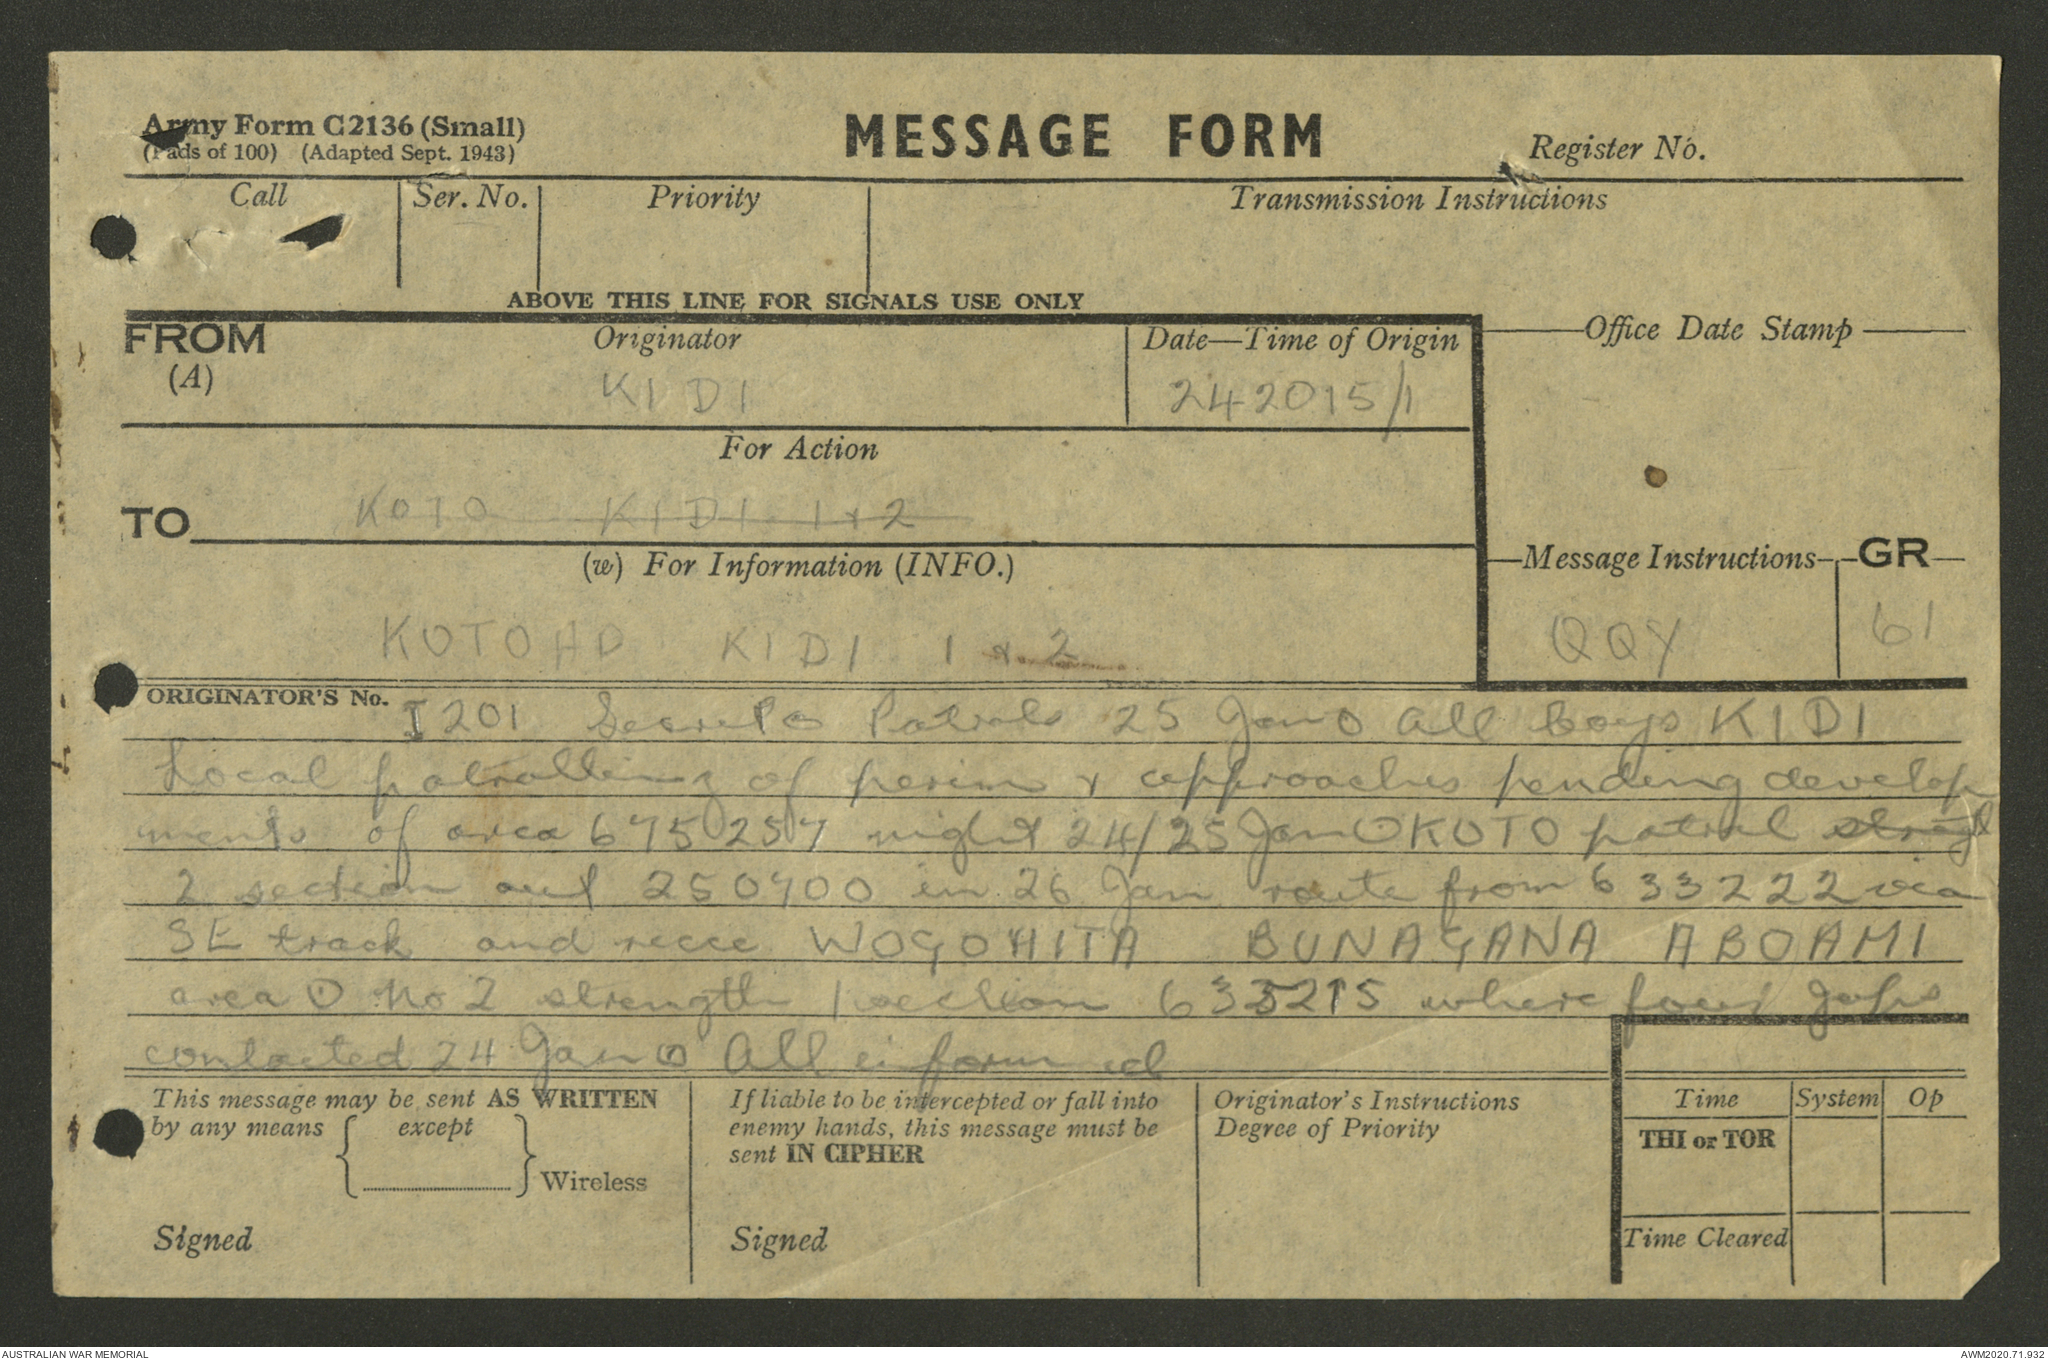 Army Form C2136 (Small)
MESSAGE FORM
(Pads of 100) (Adapted Sept. 1943)
Register No.
Call Ser. No. Priority Transmission Instructions
ABOVE THIS LINE FOR SIGNALS USE ONLY
FROM Originator Date—Time of Origin Office Date Stamp
(A) KIDI 242015/1
For Action
TO KOTO KIDI 1 & 2
(w) For Information (INFO.) Message Instructions GR
KOTO HD KIDI 1 & 2 QQY 61
ORIGINATOR'S No. I 201 Secret O Patrols 25 Jan O All boys KIDI
Local patrolling of perim & approaches pending develop
ments of area 675257 night 24/25 Jan O KOTO patrol
2 section out 250700 in 26 Jan route from 633222 via
SE track and recce WOGOHITA BUNAGANA ABOAMI
area O No 2 strength 1 section where four Japs
contacted 24 Jan O All informed
This message may be sent AS WRITTEN
by any means except
Wireless
Signed
If liable to be intercepted or fall into
enemy hands, this message must be
sent IN CIPHER
Signed
Originator's Instructions
Degree of Priority
Time System Op
THI or TOR
Time Cleared
AUSTRALIAN WAR MEMORIAL
AWM2020.71.932